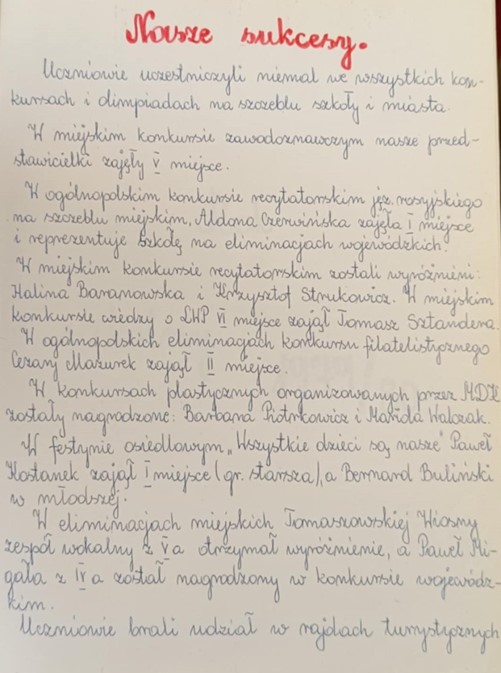 Nasze sukcesy.
Uczniowie uczestniczyli niemal we wszystkich kon-
kursach i olimpiadach na szczeblu szkoły i miasta.
W miejskim konkursie zawodoznawczym nasze przed-
stawicielki zajęły V miejsce.
W ogólnopolskim konkursie recytatorskim jęz. rosyjskiego
na szczeblu miejskim, Aldona Czerwińska zajęła I miejsce
i reprezentuje szkołę na eliminacjach wojewódzkich.
W miejskim konkursie recytatorskim zostali wyróżnieni:
Halina Baranowska i Krzysztof Strukowicz. W miejskim
konkursie wiedzy o LWP VI miejsce zajął Tomasz Sztandera.
W ogólnopolskich eliminacjach konkursu filatelistycznego
Cezary Mazurek zajął II miejsce.
W konkursach plastycznych organizowanych przez MDK
zostały nagrodzone: Barbara Piotrkowicz i Mariola Walczak.
W festynie osiedlowym „Wszystkie dzieci są nasze" Paweł
Kostanek zajął I miejsce (gr. starsza), a Bernard Buliński
w młodszej.
W eliminacjach miejskich Tomaszowskiej Wiosny
zespół wokalny z V a otrzymał wyróżnienie, a Paweł Mi-
gała z IV a został nagrodzony w konkursie wojewódz-
kim.
Uczniowie brali udział w rajdach turystycznych